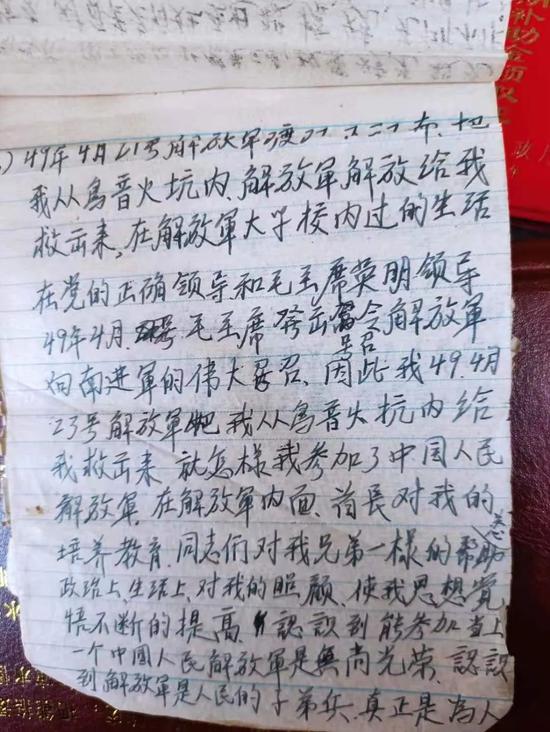 49年4月21号解放军渡
我从鳥音火坑内、解放軍解放给我
救出来,在解放軍大学校内过的生活
在党的正确领导和毛主席英明领导
49年4月 毛主席 發出 令解放軍
向南进軍的伟大号召、因此我49 4月
23号解放軍把我从鳥音火坑内给
我救出来 就怎樣我参加了中国人民
解放軍,在解放軍内面、首長对我的
培养教育,同志们对我兄弟一樣的 关心 帮助
政治上,生活上,对我的照顧、使我思想觉
悟不断的提高、認識到能参加当上
一个中国人民解放軍是無尚光荣、認識
到解放軍是人民的子弟兵、真正是為人
补助金领取
政